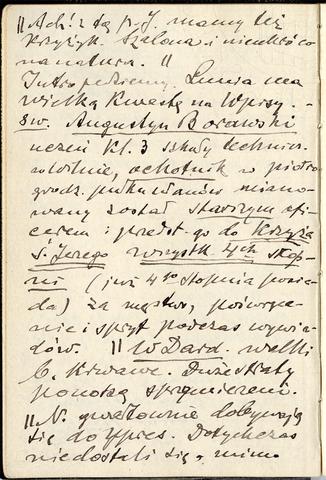 "Ach! z tą p. J. mamy też
krzyżyk. Szalona i nieukrócona
natura. "
Jutro jedziemy. Lunia ma
wielką kwestę na Wpisy. -
św. Augustyn Borawski
uczeń kl. 3 szkoły techn.
w Wilnie, ochotnik w piotro
grodz. pułku ułanów miano
wany został starszym ofi
cerem i przedst. go do krzyża
Ś. Jerzego wszystk. 4ch stop
ni (już 4go stopnia posia
da) za męstwo, poświęce
nie i spryt podczas wywia
dów. " W Dard. walki
b. krwawe. Duże straty
ponoszą sprzymierzeni.
" N. gwałtownie dobywają
się do Ypres. Dotychczas
nie dostali się, mimo